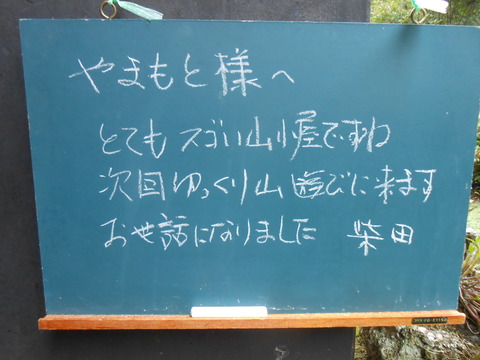 やまもと様へ
とてもスゴい山小屋ですね
次回ゆっくり山遊びに来ます
お世話になりました 柴田